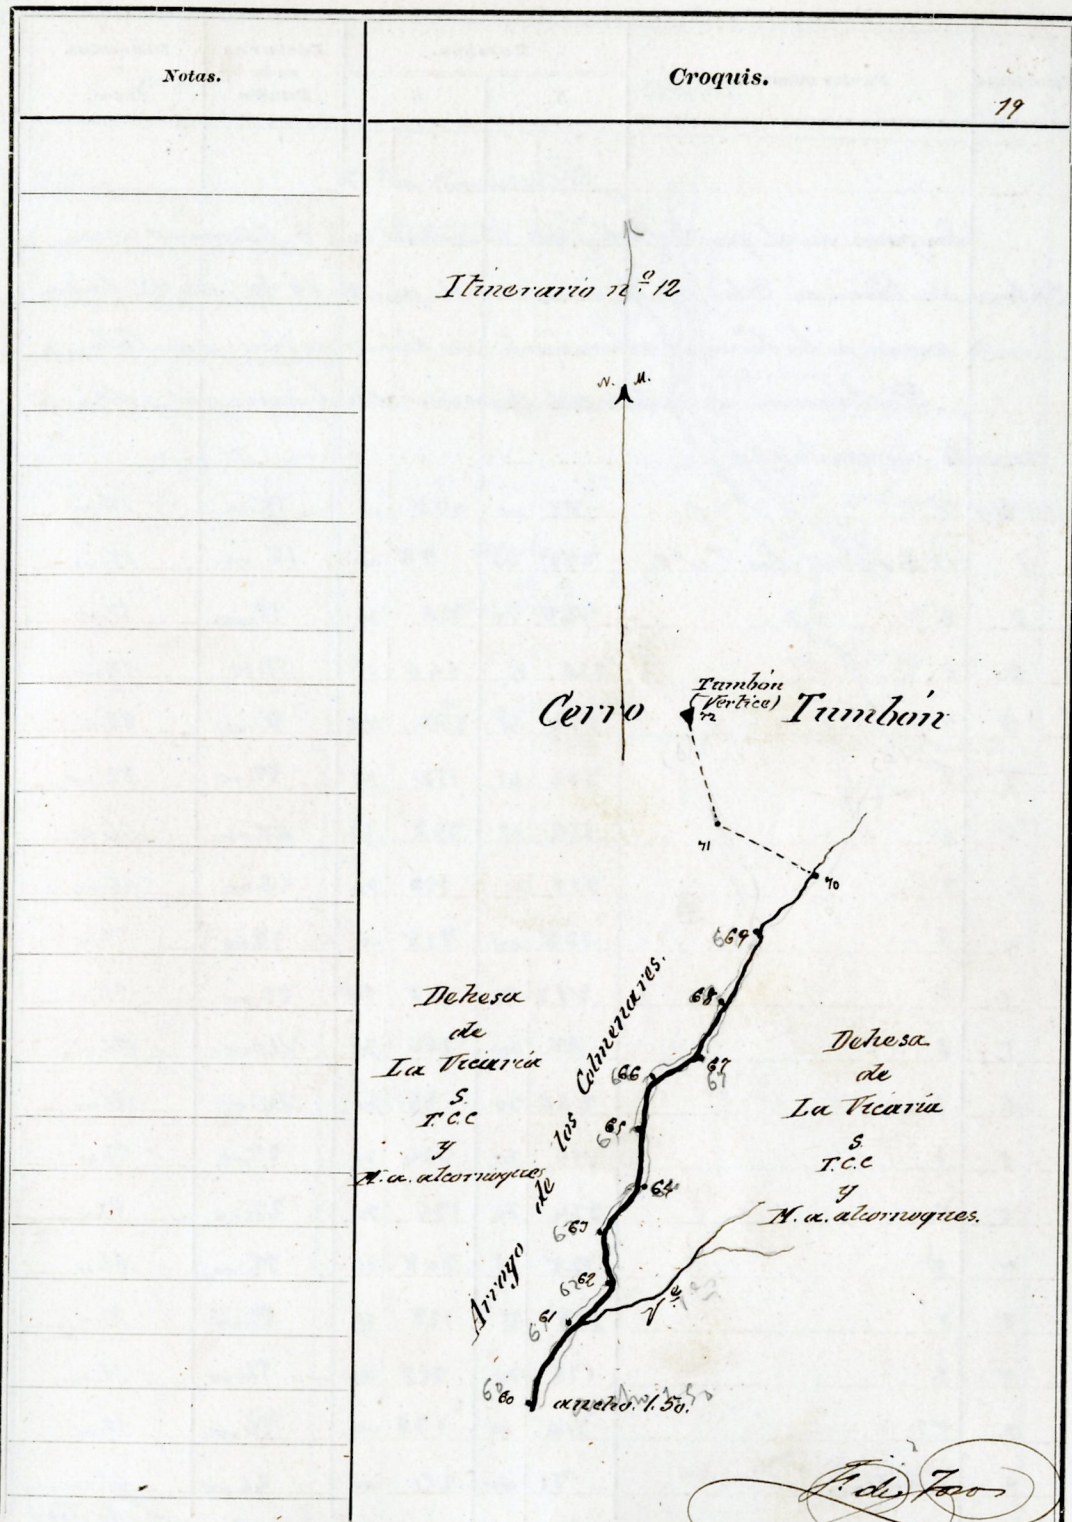 Notas.
Croquis.
19
Itinerario n.º 12
N. M.
Cerro
Tumbón
(Vértice)
72
Tumbón
71
70
69
68
67
66
65
64
63
62
61
60
Arroyo de los Colmenares.
Dehesa
de
La Vicaría
S.
T.C.C
y
M.a. alcornoques
Dehesa
de
La Vicaría
S.
T.C.C
y
M.a. alcornoques.
V.e
ancho. 1.50.
F. de Toro